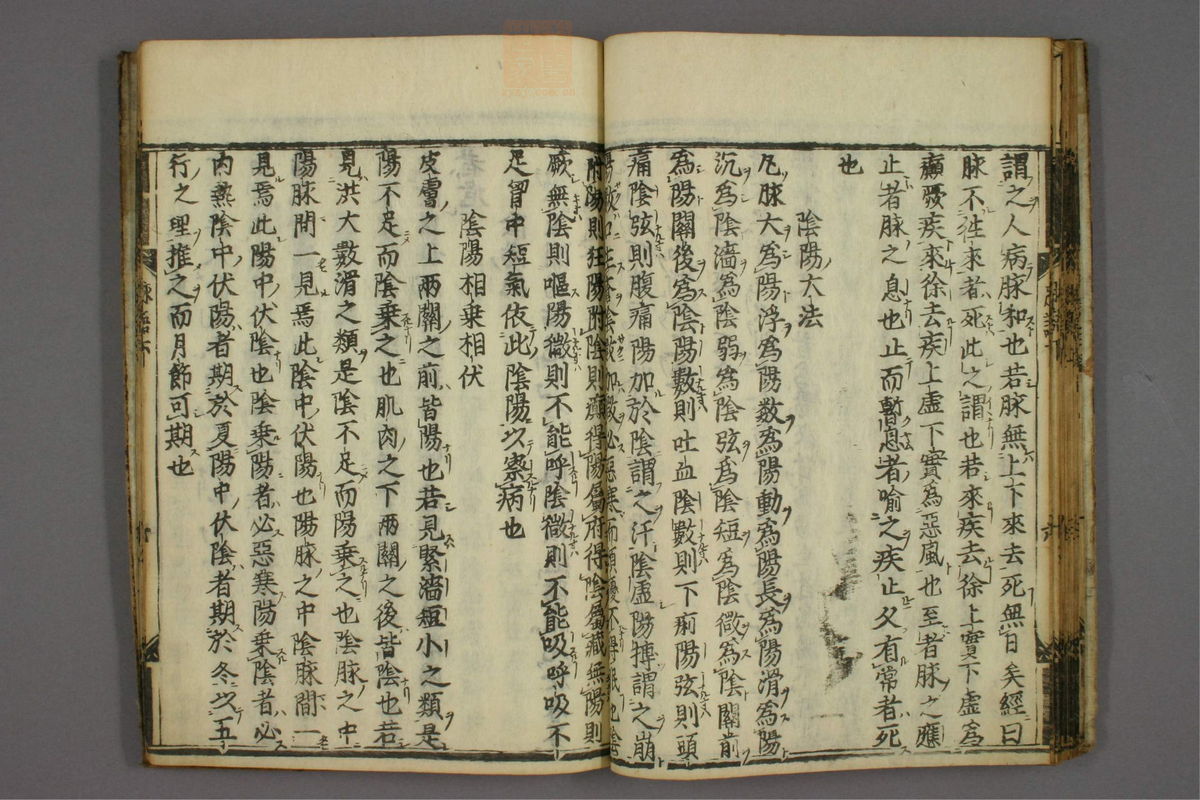 謂之人病脉和也若脉無上下來去死無日矣經曰
脉不徃來者死此之謂也若來疾去徐上實下虛爲
癲疾來徐去疾上虛下實爲惡風也至者脉之應
止者脉之息也止而暫息者喻之疾止久有常者死
也
陰陽大法
凡脉大爲陽浮爲陽数爲陽動爲陽長爲陽滑爲陽
沉爲陰濇爲陰弱爲陰弦爲陰短爲陰微爲陰關前
爲陽關後爲陰陽數則吐血陰數則下痢陽弦則頭
痛陰弦則腹痛陽加於陰謂之汗陰虛陽搏謂之崩
附陽則狂陽附陰則癲得陽屬府得陰屬藏無陽則
厥無陰則嘔陽微則不能呼陰微則不能吸呼吸不
足胷中短氣依此陰陽以察病也
陰陽相乗相伏
皮膚之上兩關之前皆陽也若見緊濇短小之類是
陽不足而陰乗之也肌肉之下兩關之後皆陰也若
見洪大數滑之類是陰不足而陽乗之也陰脉之中
陽脉間一見焉此陰中伏陽也陽脉之中陰脉間一
見焉此陽中伏陰也陰乗陽者必惡寒陽乗陰者必
内熱陰中伏陽者期於夏陽中伏陰者期於冬以五
行之理推之而月節可期也